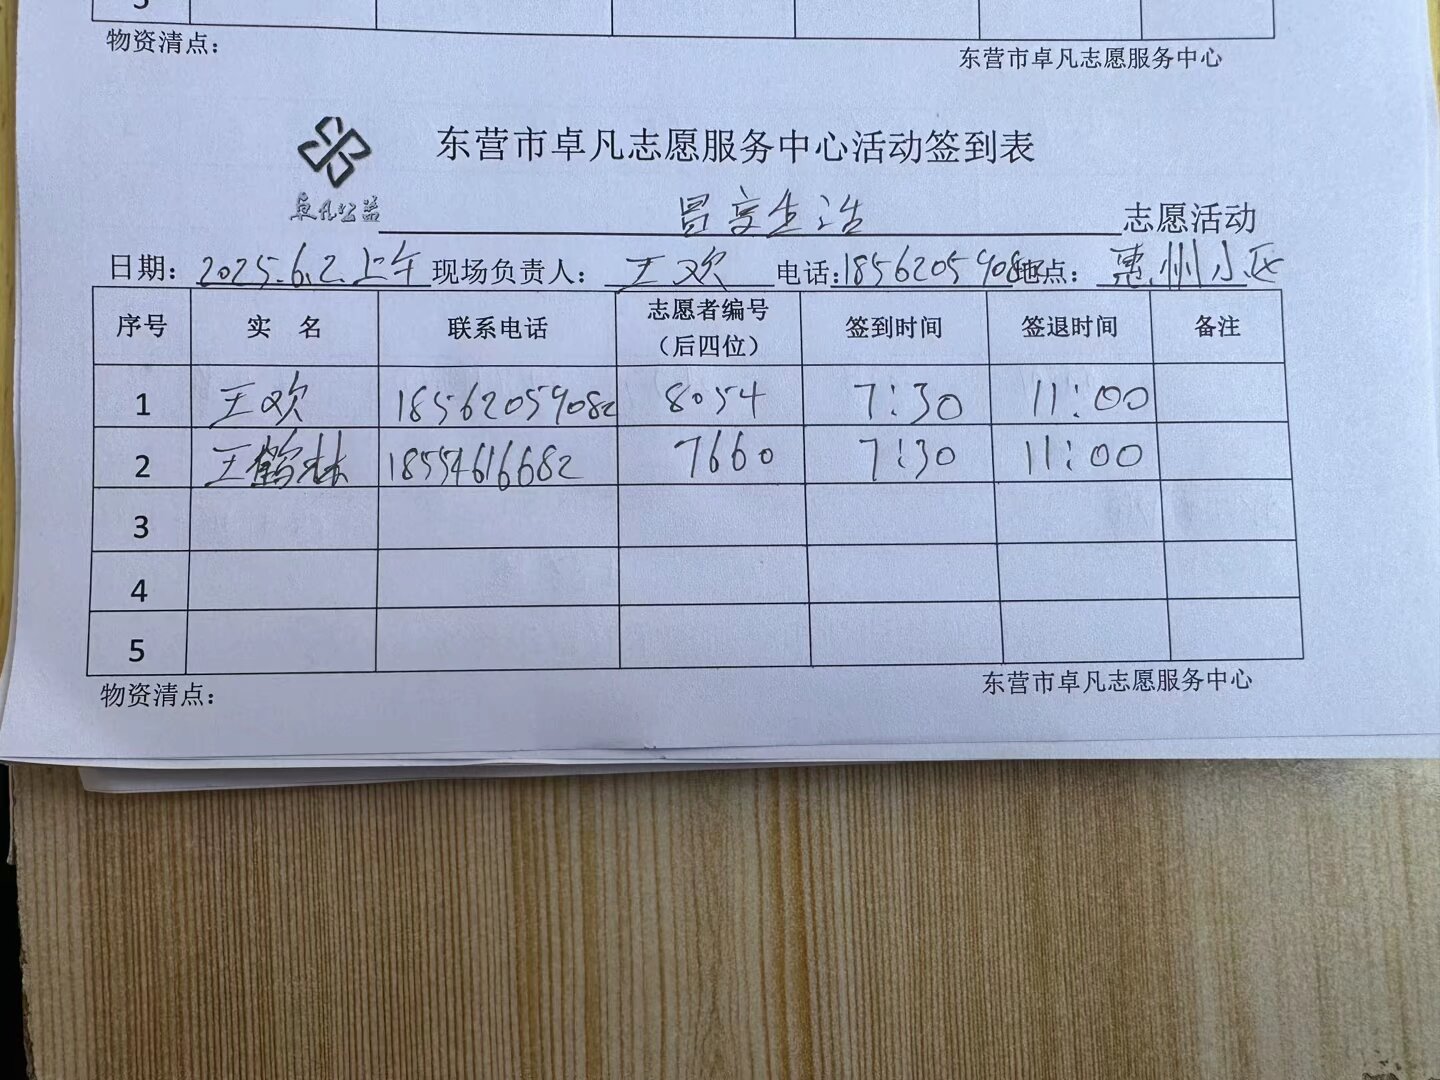 5
物资清点：
东营市卓凡志愿服务中心
东营市卓凡志愿服务中心活动签到表
卓凡公益
享生活 志愿活动
日期：2025.6.2.上午 现场负责人：王欢 电话：18562059082 地点：惠州小区
序号 实 名 联系电话 志愿者编号（后四位） 签到时间 签退时间 备注
1 王欢 18562059082 8054 7:30 11:00
2 王鹤林 18554616682 7660 7:30 11:00
3
4
5
物资清点：
东营市卓凡志愿服务中心